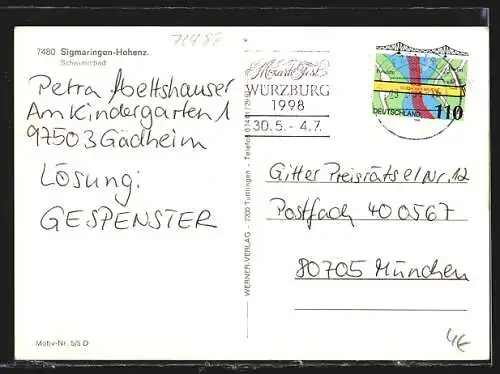 71488
7480 Sigmaringen-Hohenz.
Schwimmbad
Petra Abeltshauser
Am Kindergarten 1
97503 Gädheim
Lösung:
GESPENSTER
Motiv-Nr. 5/5 D
WERNER-VERLAG - 7200 Tuttlingen - Telefon
Mozart Fest
WÜRZBURG
1998
30.5. - 4.7.
DEUTSCHLAND
110
Gitter Preisrätsel Nr. 12
Postfach 400567
80705 München
4€